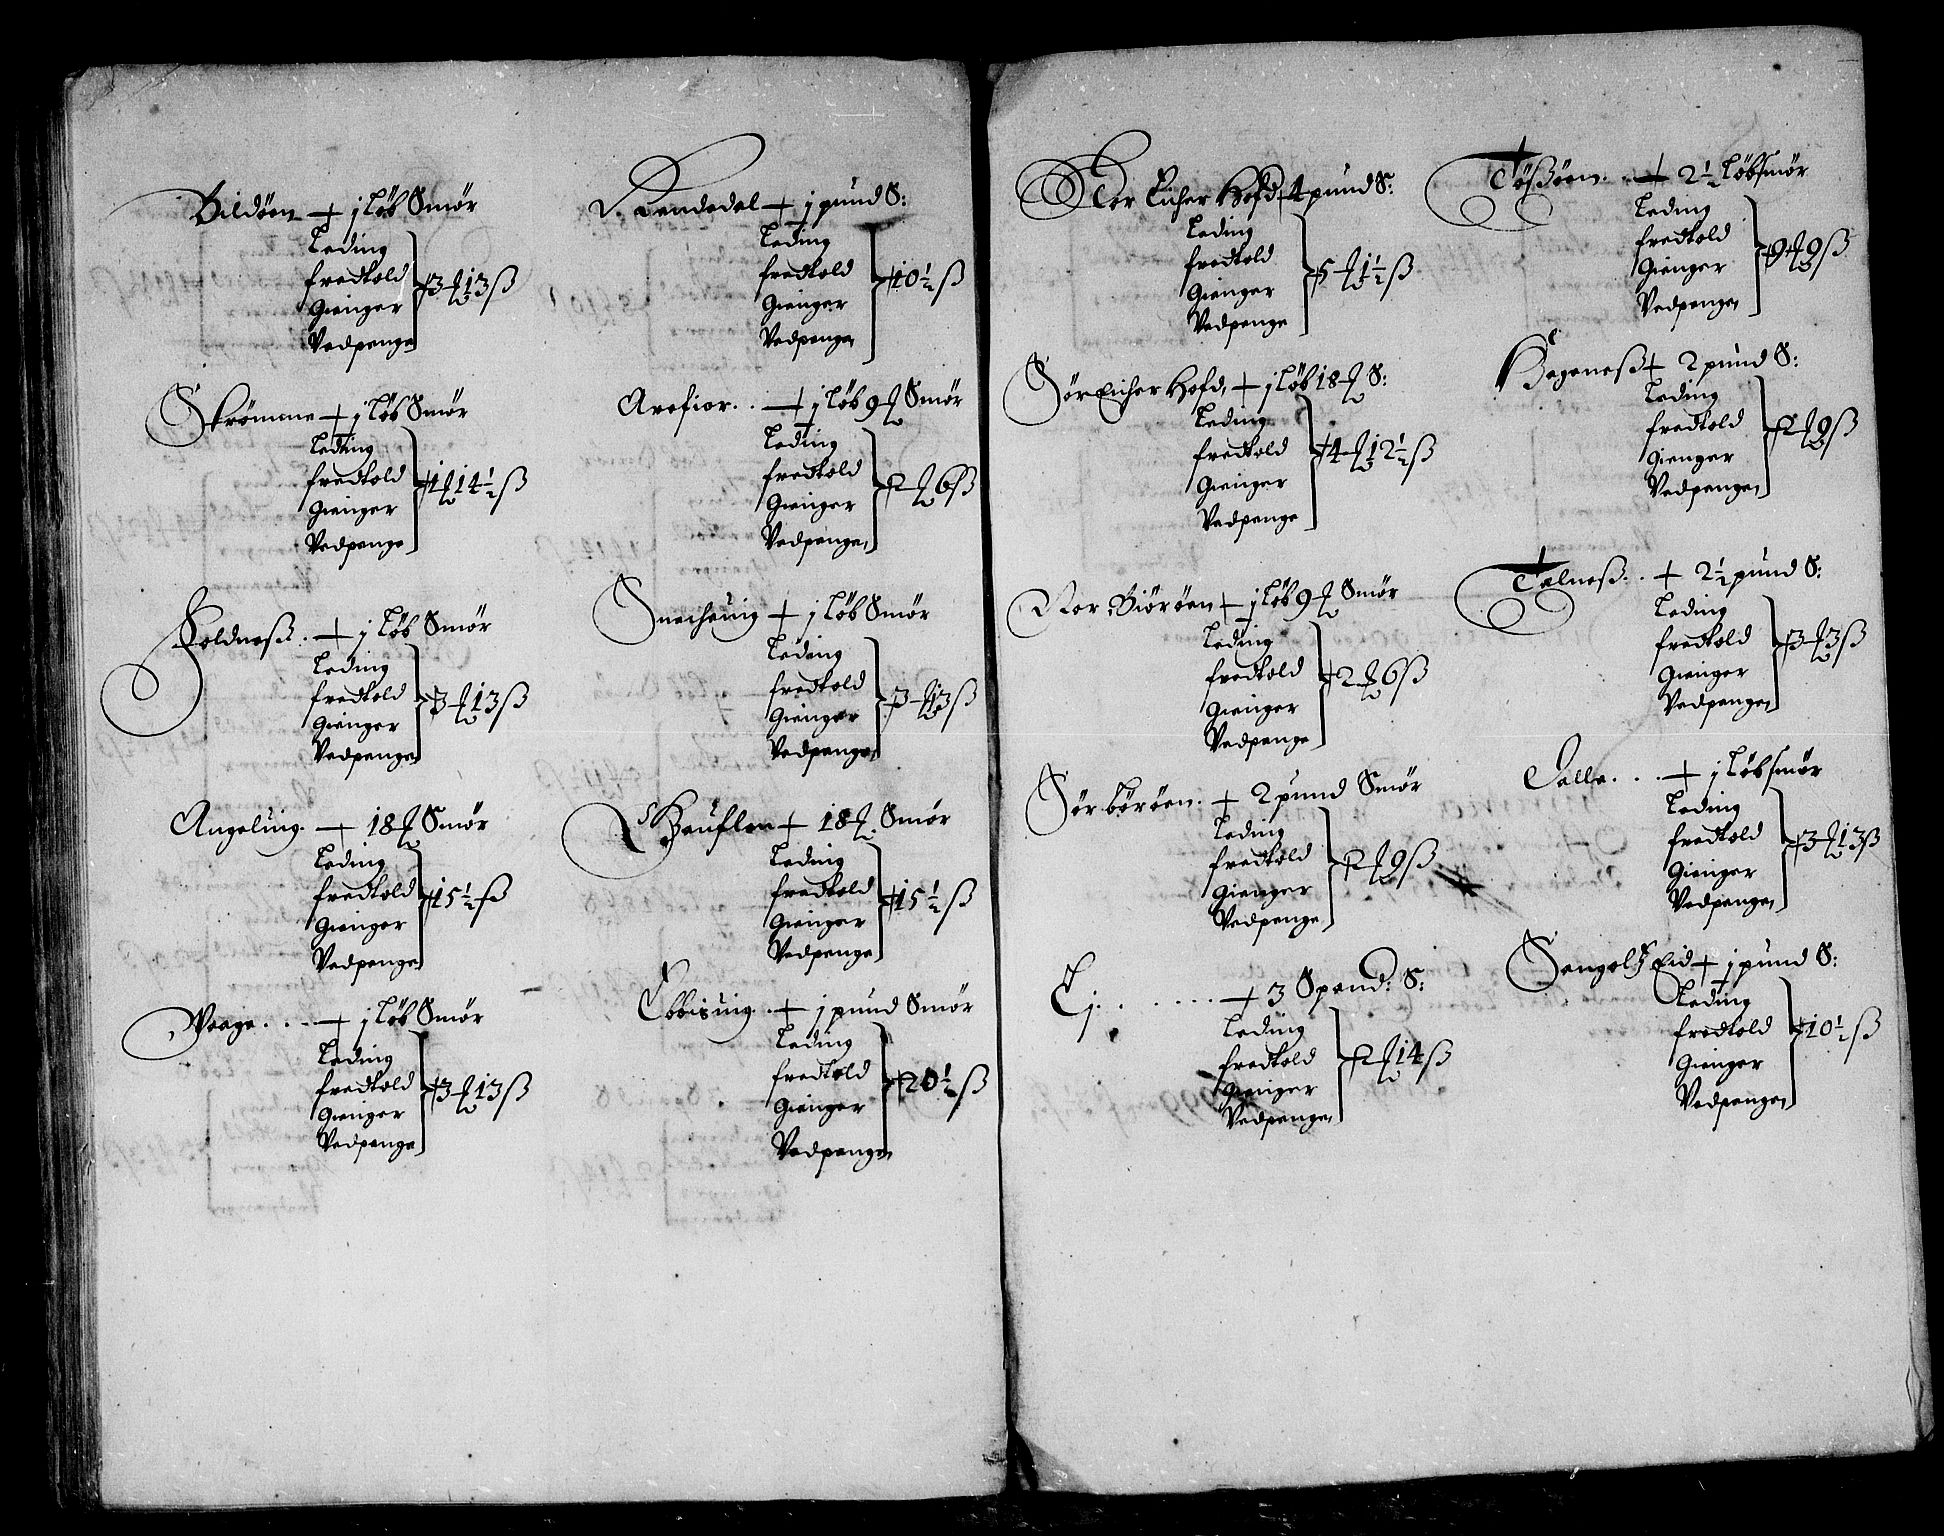 Bildøen + j løb Smør
Leding
fredtold
Gienger
Vedpenge
3 ₰ 13 ß
Skrømme + j løb Smør
Leding
fredtold
Gienger
Vedpenge
1 ₰ 14½ ß
Foldneß. + j løb Smør
Leding
fredtold
Gienger
Vedpenge
3 ₰ 13 ß
Angeluig. + 18 ₰ Smør
Leding
fredtold
Gienger
Vedpenge
15½ ß
Waage. . . + j løb Smør
Leding
fredtold
Gienger
Vedpenge
3 ₰ 13 ß
Rendedal + j pund S:
Leding
fredtold
Gienger
Vedpenge
10½ ß
Arefior. . + j løb 9 ₰ Smør
Leding
fredtold
Gienger
Vedpenge
2 ₰ 6 ß
Snecheuig + j løb Smør
Leding
fredtold
Gienger
Vedpenge
3 ₰ 13 ß
+ 18 ₰. Smør
Leding
fredtold
Gienger
Vedpenge
15½ ß
Ebbisuig. . + j pund Smør
Leding
fredtold
Gienger
Vedpenge
20½ ß
Nor Eicher Hofd + 4 pund S:
Leding
fredtold
Gienger
Vedpenge
5 ₰ 1½ ß
Sør Eicher Hofd, + j løb 18 ₰ S:
Leding
fredtold
Gienger
Vedpenge
4 ₰ 12½ ß
Nor Biørøen + j løb 9 ₰ Smør
Leding
fredtold
Gienger
Vedpenge
2 ₰ 6 ß
Sør børøen. + 2 pund Smør
Leding
fredtold
Gienger
Vedpenge
2 ₰ 9 ß
Ej. . . . . . + 3 Spand: S:
Leding
fredtold
Gienger
Vedpenge
2 ₰ 14 ß
Tøßøen. . + 2½ løb smør
Leding
fredtold
Gienger
Vedpenge
9 ₰ 9 ß
Bageneß + 2 pund S:
Leding
fredtold
Gienger
Vedpenge
2 ₰ 9 ß
Telneß. . + 2½ pund S:
Leding
fredtold
Gienger
Vedpenge
3 ₰ 3 ß
Calle. . . + j løb smør
Leding
fredtold
Gienger
Vedpenge
3 ₰ 13 ß
Sangolß Eid + j pund S:
Leding
fredtold
Gienger
Vedpenge
10½ ß